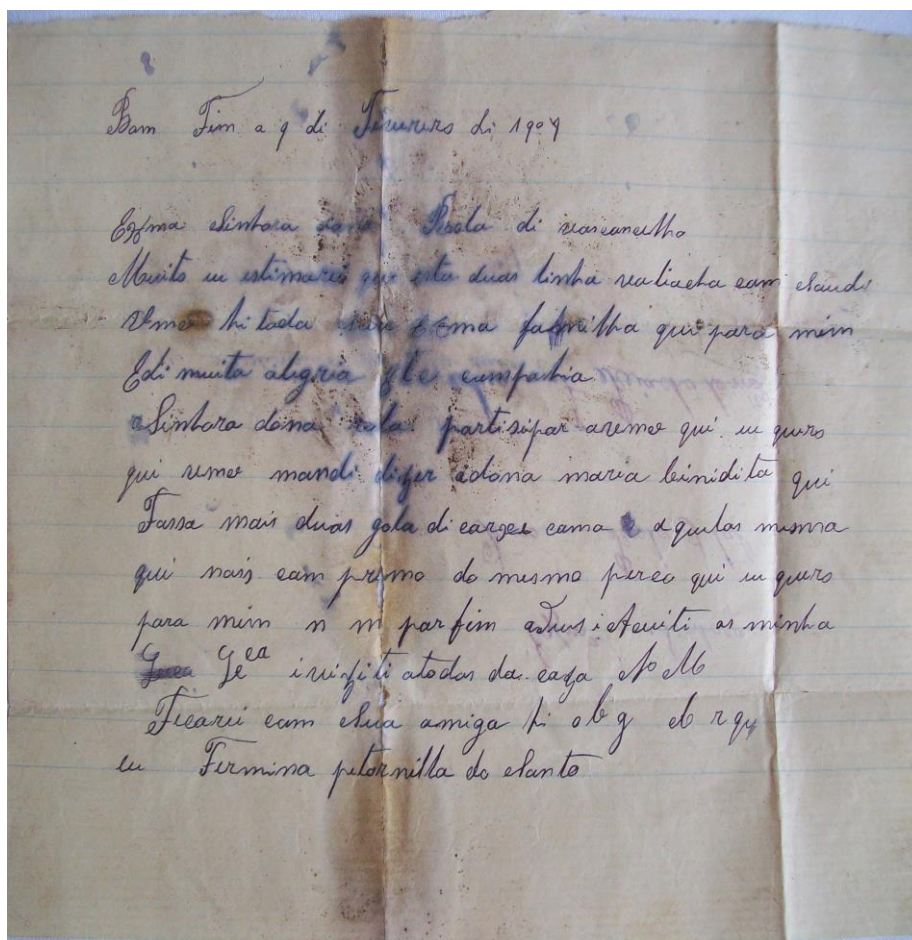 Bom Fim a 9 di Feverero di 1904
Exma Sinhora dona Rola di vasconcellho
Muito eu estimarei que esta duas linha va liacha com Saudi
Vmce hi toda sua Exma familha qui para mim
Edi muita alegria compachia
Sinhora dona rola partisipar avmce qui eu quero
qui vmce mandi dizer adona maria binidita qui
Fassa mais duas gola di como aquelas mesma
qui mais com do mesmo qui eu quero
para mim n m por fim adeus Aceiti as minha
i viziti atodos da caza No M
Ficarei com Sua amiga hi obg
eu Firmina petornilla do Santo